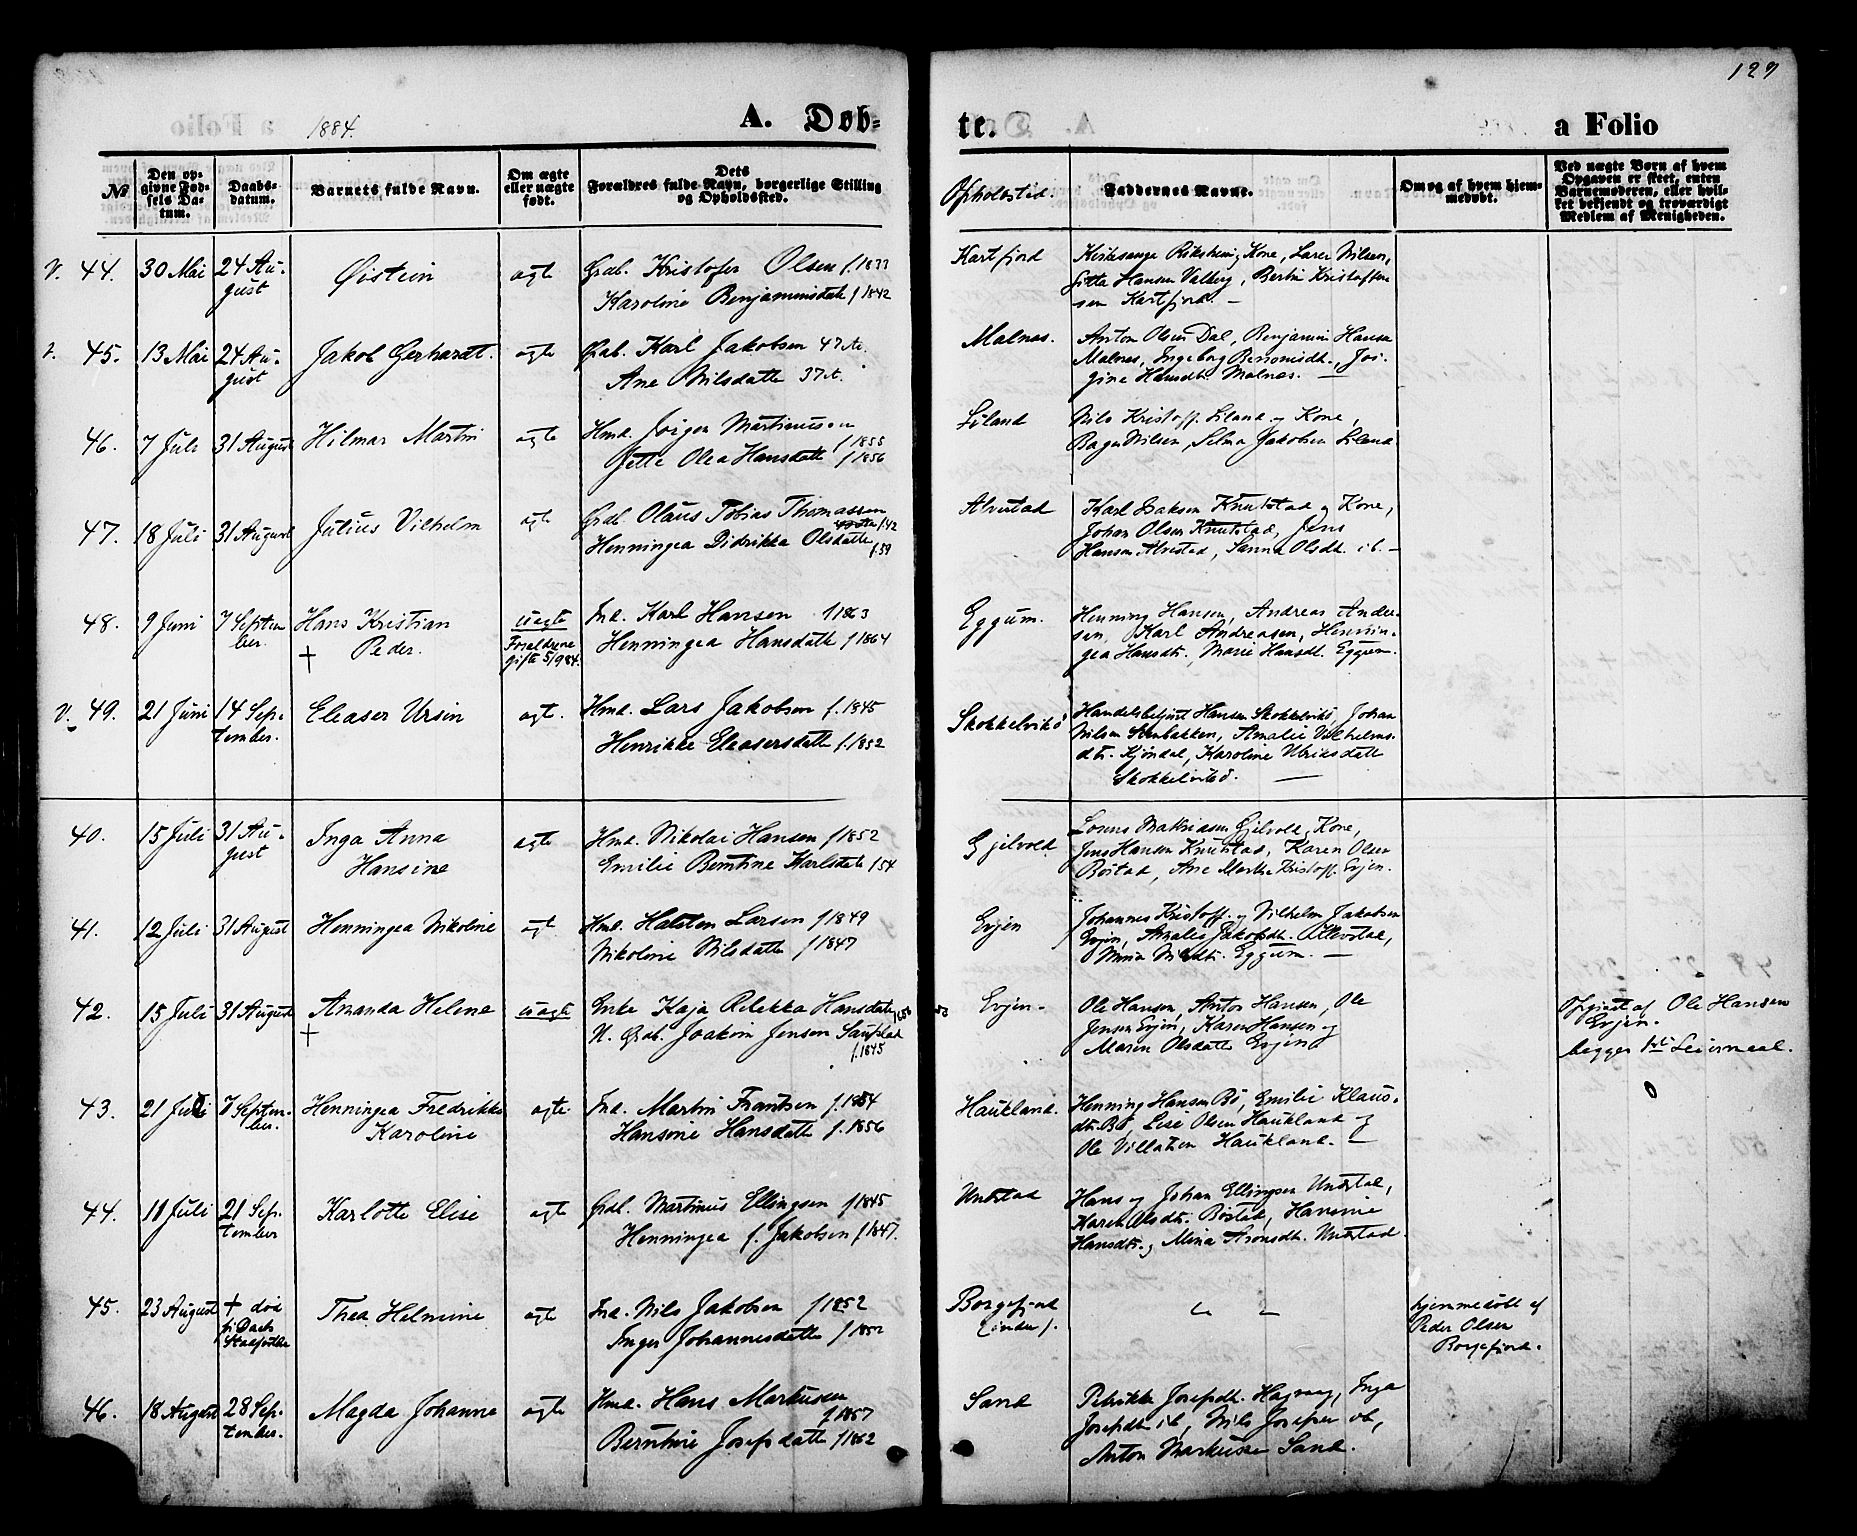 127
1884.
A. Døb-
te.
a Folio
№
Den op-
givne Fød-
sels Da-
tum.
Daabs-
datum.
Barnets fulde Navn.
Om ægte
eller uægte
født.
Dets
Forældres fulde Navn, borgerlige Stilling
og Opholdssted.
Opholdstid.
Faddernes Navne.
Om og af hvem hjem-
medøbt.
Ved uægte Børn af hvem
Opgaven er skeet, enten
Barnemoderen, eller hvil-
ket bekjendt og troværdigt
Medlem af Menigheden.
V. 44.
30 Mai
24 Au-
gust
Øistein
ægte
Grdb. Kristofer Olsen f. 1833
Karoline Benjaminsdatt f 1842
Kartfjord
Kone, Larer Nilsen,
Gitta Hansen Valberg, Bertin Kristoffer
sen Kartfjord. —
45.
13 Mai
24 Au-
gust
Jakob Gerhardt.
ægte
Grdb. Karl Jakobsen 47 A.
Ane Nilsdatte 37 A.
Malnes.
Anton Olsen Dal, Benjamin Hansen
Malnes, Ingeborg Benonisdt., Jor-
gine Hansdt. Malnes. —
46.
7 Juli
31 August
Hilmar Martin
ægte
Hmd. Jørgen Martinussen
f 1855
Jette Olea Hansdatte f 1856
Liland
Nils Kristoff. Liland og Kone,
Nilsen, Selma Jakobsen Liland
47.
18 Juli
31 August
Julius Vilhelm
ægte
Grdb. Olaus Tobias Thomassen
f. 42
Henningea Didrikka Olsdatte
f. 59
Alvestad
Karl Isaksen Knutstad og Kone,
Johan Olsen Knutstad, Jens
Hansen Alvestad, Sanna Olsdt. ib. —
48.
9 Juni
7 Septem
ber.
Hans Kristian
Peder.
†
uægte
Forældrene
gifte 5/9 84.
Ind. Karl Hansen f 1863
Henningea Hansdatte f 1864
Eggum.
Henning Hansen, Andreas Ander-
sen, Karl Andreasen, Hennin-
gea Hansdt., Marie Hansdt. Eggum.
V. 49.
21 Juni
14 Sep-
tember.
Eleaser Ursin
ægt.
Hmd. Lars Jakobsen f. 1845
Henrikke Eleasersdatte f. 1852
Skokkelvikø
Handelsbetjent Hansen Skokkelvikø, Johan
Nilsen Stenbakken, Amalie Vilhelms-
dt. Kjøndal, Karoline Ulriksdatte
Skokkelvikø. —
40.
15 Juli
31 Au-
gust
Inga Anna
Hansine
ægte
Hmd. Nikolai Hansen f 1852
Emilie Berntine Karlsdatte f 54
Gjelvold.
Lorens Mathiasen Gjelvold, Kone,
Jens Hansen Knutstad, Karen Olsen
Bøstad, Ane Martha Kristoff. Evjen.
41.
12 Juli
31 August
Henningea Nikoline
ægt.
Hmd. Halsten Larsen f 1849
Nikoline Nilsdatte f 1847
Evjen
Johannes Kristoff. og Vilhelm Jakobsen
Evjen, Amalie Jakobsdt. Alvestad,
Nilsdt. Eggum. —
42.
15 Juli
31 August
Amanda Helene
†
uægte
Enke Kaja Rebekka Hansdatte
N. Grdb. Joakim Jensen
f. 1845
Evjen.
Ole Hansen, Anton Hansen, Ole
Jensen Evjen, Karen Hansen og
Maren Olsdatte Evjen
Opgivet af Ole Hansen
Evjen.
begges 1ste Leiermaal.
43.
21 Juli
7 Septem-
ber.
Henningea Fredrikke
Karoline
ægte
Ind. Martin Frantsen f. 1854
Hansine Hansdatte f. 1856
Haukland.
Henning Hansen Bø, Emilie Klaus-
dt. Bø, Lise Olsen Haukland og
Ole Villatsen Haukland. —
44.
11 Juli
21 Sep.
tember
Karlotte Elise
ægte
Grdb. Martinus Ellingsen f 1845
Henningea f. Jakobsen f 1847.
Unstad
Hans og Johan Ellingsen Unstad,
Karen Olsdt. Bøstad, Hansine
Hansdt. og Mina Aronsdt. Unstad.
45.
23 August
† død
Thea Helmine
ægte
Ind. Nils Jakobsen f 1852
Inger Johannesdatte f 1852
Borgefjord
(indre).
hjemmedøbt af
Peder Olsen
Borgefjord.
46.
18 August
28 Sep-
tember.
Magda Johanna
ægte
Hmd. Hans Markusen
f 1857
Berntine Josefsdatte f 1862
Sand
Petrikke Josefsdt. Hagvaag, Inga
Josefsdt. ib, Nils Josefsen ib,
Anton Markusen Sand.